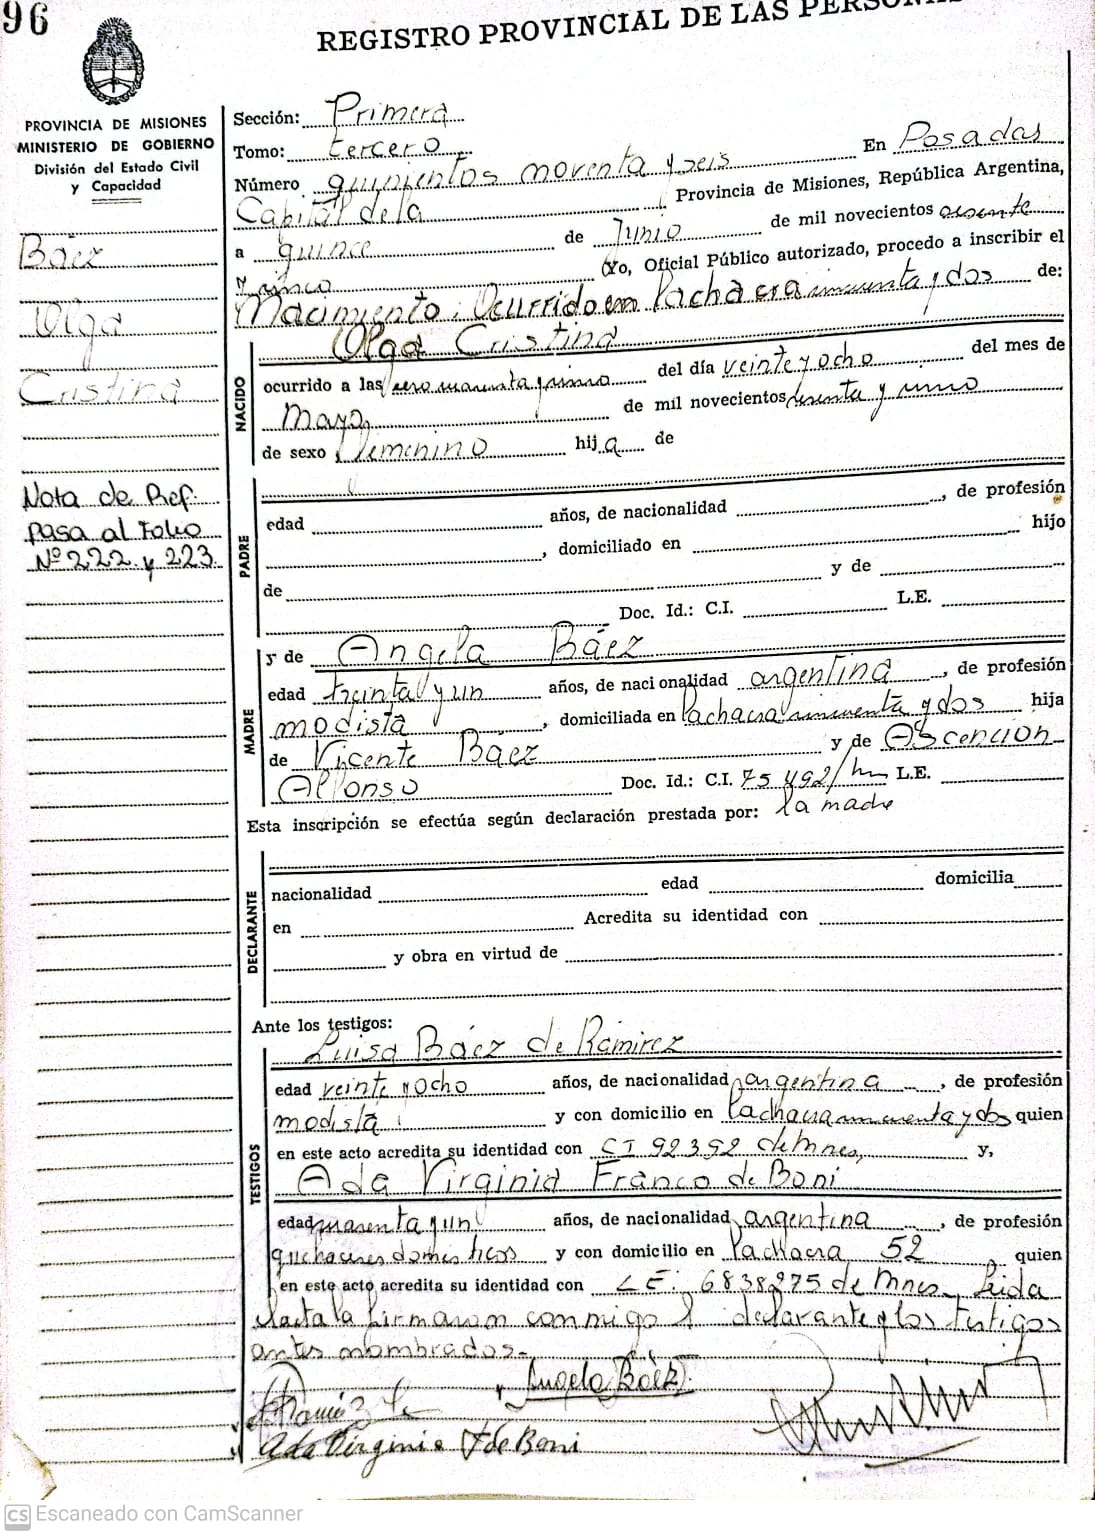 96
REGISTRO PROVINCIAL DE LAS PERSONA
PROVINCIA DE MISIONES
MINISTERIO DE GOBIERNO
División del Estado Civil
y Capacidad
Báez
Olga
Cristina
Nota de Ref.
pasa al Folio
Nº 222 y 223.
Sección: Primera
Tomo: tercero
En Posadas
Número quinientos noventa y seis
Capital de la Provincia de Misiones, República Argentina,
a quince de Junio de mil novecientos sesenta
y cinco (Yo, Oficial Público autorizado, procedo a inscribir el
Nacimiento: Ocurrido en la chacra cincuenta y dos de:
NACIDO
Olga Cristina
ocurrido a las cero cuarenta y cinco del día veinte y ocho del mes de
Mayo de mil novecientos sesenta y cinco
de sexo femenino hija de
PADRE
edad años, de nacionalidad , de profesión
, domiciliado en hijo
de y de
Doc. Id.: C.I. L.E.
MADRE
y de Angela Báez
edad treinta y un años, de nacionalidad argentina , de profesión
modista , domiciliada en la chacra cincuenta y dos hija
de Vicente Báez y de Ascención
Alfonso Doc. Id.: C.I. 75492/ L.E.
Esta inscripción se efectúa según declaración prestada por: la madre
DECLARANTE
nacionalidad edad domicilia
en Acredita su identidad con
y obra en virtud de
Ante los testigos:
TESTIGOS
Luisa Báez de Ramirez
edad veinte y ocho años, de nacionalidad argentina , de profesión
modista y con domicilio en la chacra cincuenta y dos quien
en este acto acredita su identidad con CI 92392 de Mnes, y,
Ada Virginia Franco de Boni
edad cuarenta y un años, de nacionalidad argentina , de profesión
quehaceres domésticos y con domicilio en la chacra 52 quien
en este acto acredita su identidad con LE. 6838275 de Mnes. Leida
el acta la firmaron conmigo el declarante y los testigos
antes nombrados.-
Angela Báez
Ada Virginia F de Boni
CS Escaneado con CamScanner